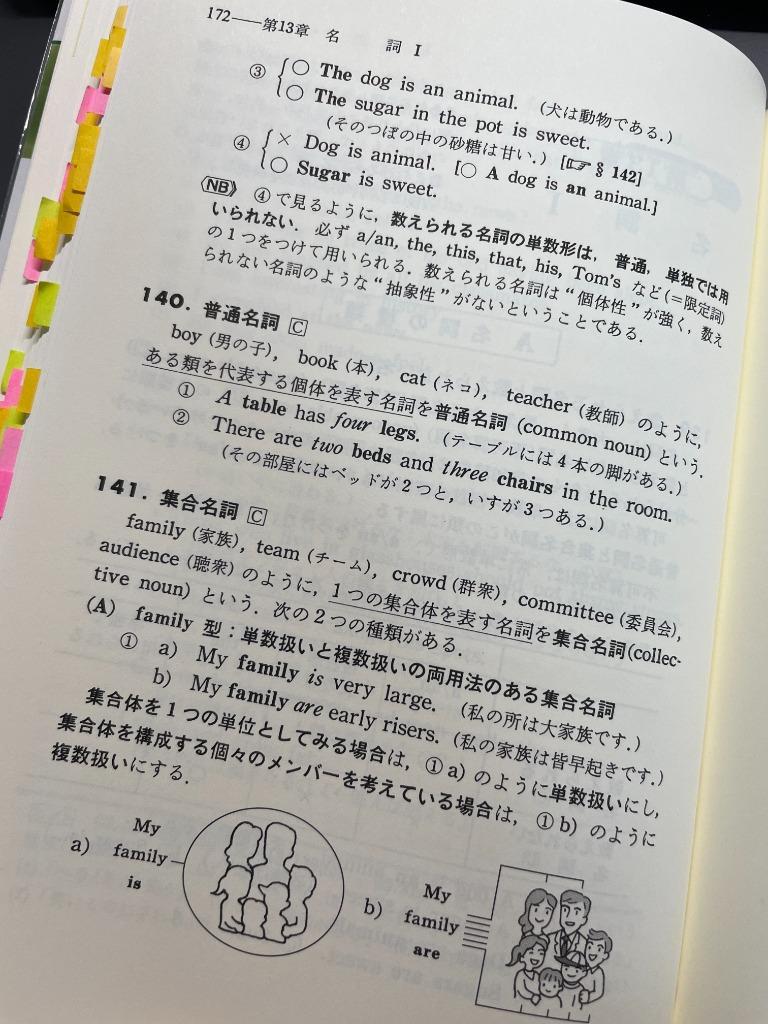 172——第13章 名 詞 I
③ ○ The dog is an animal. (犬は動物である.)
○ The sugar in the pot is sweet.
(そのつぼの中の砂糖は甘い.) [☞ § 142]
④ × Dog is animal. [○ A dog is an animal.]
○ Sugar is sweet.
NB ④で見るように, 数えられる名詞の単数形は, 普通, 単独では用
いられない. 必ず a/an, the, this, that, his, Tom's など(=限定詞)
の1つをつけて用いられる. 数えられる名詞は“個体性”が強く, 数え
られない名詞のような“抽象性”がないということである.
140. 普通名詞 C
boy (男の子), book (本), cat (ネコ), teacher (教師) のように,
ある類を代表する個体を表す名詞を普通名詞 (common noun) という.
① A table has four legs. (テーブルには4本の脚がある.)
② There are two beds and three chairs in the room.
(その部屋にはベッドが2つと, いすが3つある.)
141. 集合名詞 C
family (家族), team (チーム), crowd (群衆), committee (委員会),
audience (聴衆) のように, 1つの集合体を表す名詞を集合名詞(collec-
tive noun) という. 次の2つの種類がある.
(A) family 型：単数扱いと複数扱いの両用法のある集合名詞
① a) My family is very large. (私の所は大家族です.)
b) My family are early risers. (私の家族は皆早起きです.)
集合体を1つの単位としてみる場合は, ① a) のように単数扱いにし,
集合体を構成する個々のメンバーを考えている場合は, ① b) のように
複数扱いにする.
a) My
family
is
b) My
family
are